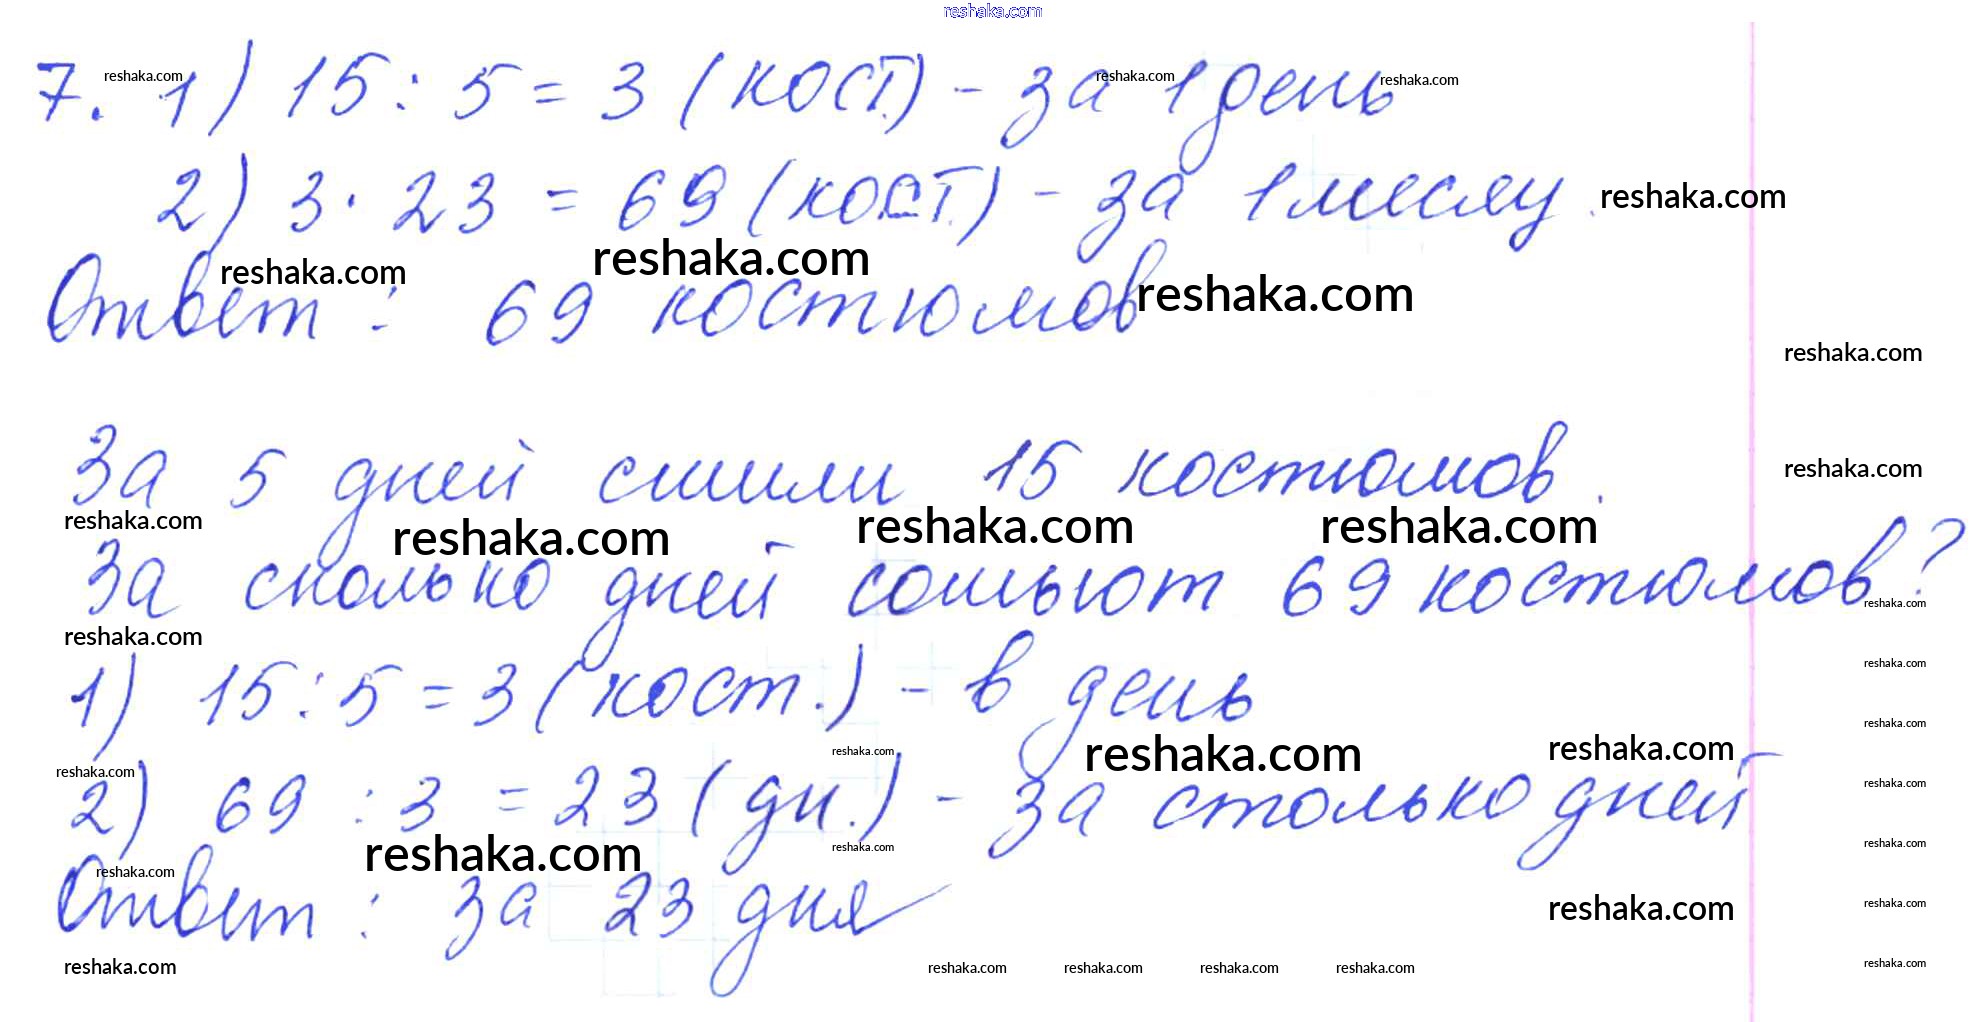 reshaka.com
7. 1) 15 : 5 = 3 (кост.) - за 1 день
reshaka.com reshaka.com reshaka.com
2) 3 · 23 = 69 (кост.) - за 1 месяц
reshaka.com
Ответ : 69 костюмов
reshaka.com reshaka.com reshaka.com
reshaka.com
За 5 дней сшили 15 костюмов.
reshaka.com
reshaka.com reshaka.com reshaka.com reshaka.com
За сколько дней сошьют 69 костюмов?
reshaka.com
reshaka.com
reshaka.com
1) 15 : 5 = 3 (кост.) - в день
reshaka.com
reshaka.com reshaka.com reshaka.com
2) 69 : 3 = 23 (дн.) - за столько дней
reshaka.com reshaka.com
reshaka.com reshaka.com reshaka.com
Ответ : за 23 дня
reshaka.com reshaka.com reshaka.com
reshaka.com reshaka.com reshaka.com reshaka.com reshaka.com reshaka.com